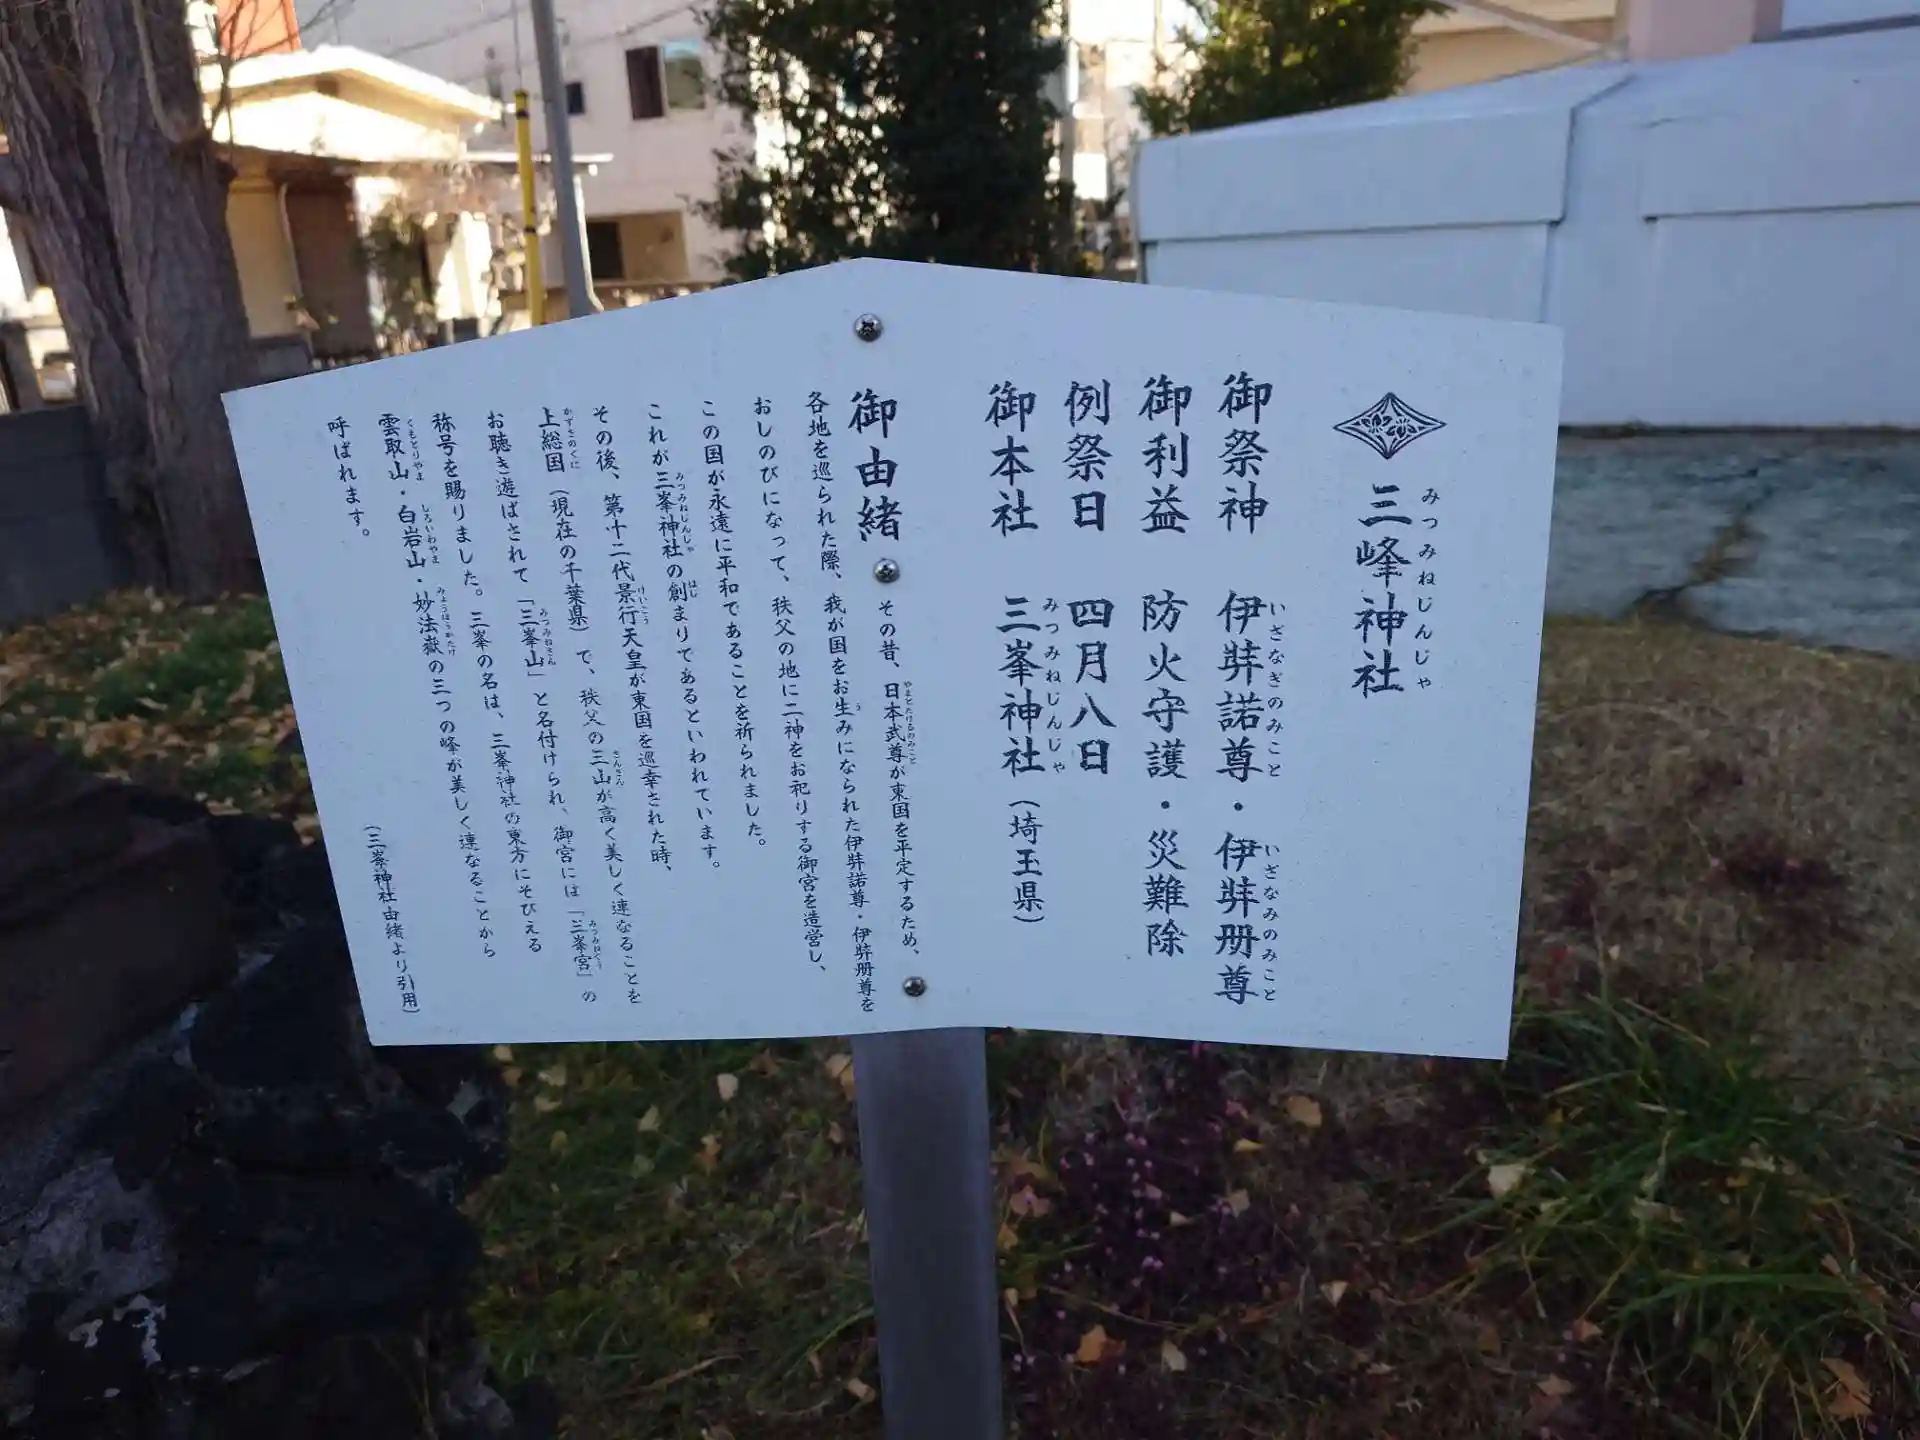 三峰神社
みつみねじんじゃ
御祭神 伊弉諾尊・伊弉册尊
いざなぎのみこと いざなみのみこと
御利益 防火守護・災難除
例祭日 四月八日
御本社 三峯神社（埼玉県）
みつみねじんじゃ
御由緒 その昔、日本武尊が東国を平定するため、
やまとたけるのみこと
各地を巡られた際、我が国をお生みになられた伊弉諾尊・伊弉册尊を
う
おしのびになって、秩父の地に二神をお祀りする御宮を造営し、
この国が永遠に平和であることを祈られました。
これが三峯神社の創まりであるといわれています。
みつみねじんじゃ はじ
その後、第十二代景行天皇が東国を巡幸された時、
けいこう
上総国（現在の千葉県）で、秩父の三山が高く美しく連なることを
かずさのくに さんざん
お聴き遊ばされて「三峯山」と名付けられ、御宮には「三峯宮」の
みつみねさん みつみねぐう
称号を賜りました。三峯の名は、三峯神社の東方にそびえる
雲取山・白岩山・妙法嶽の三つの峰が美しく連なることから
くもとりやま しろいわやま みょうほうがたけ
呼ばれます。
（三峯神社由緒より引用）